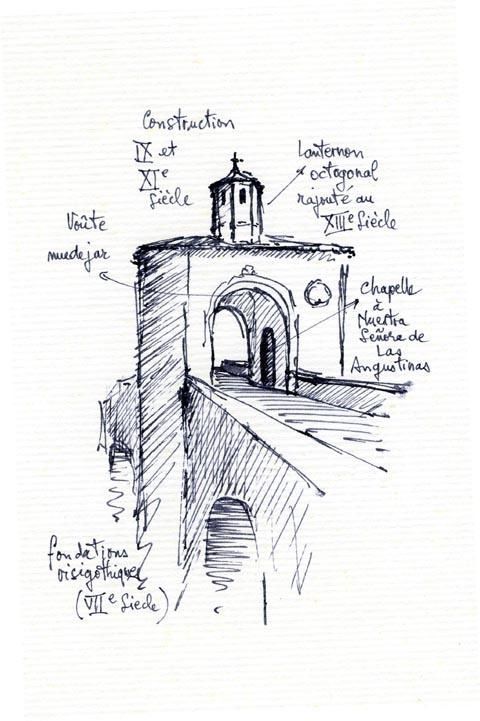 Construction
IX et
XIe
Siècle
Lanternon
octogonal
rajouté au
XIIIe Siècle
Voûte
muedejar
Chapelle
à
Nuestra
Señora de
Las
Angustinas
fondations
visigothiques
(VIIe Siècle)